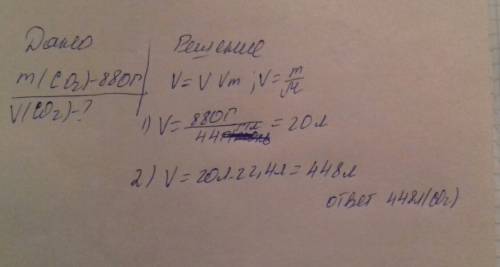 Дано
m(CO₂)-880г
V(CO₂)-?
Решение
V=V Vm ; V=m/M
1) V=880г/44 =20л
2) V=20л.22,4л=448л
ответ 448л(CO₂)